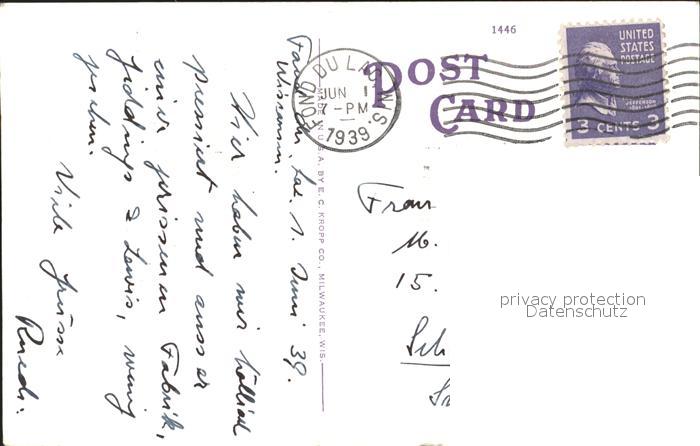 1446
POST
CARD
UNITED
STATES
POSTAGE
JEFFERSON
3 CENTS 3
FOND DU LAC WIS.
JUN 1
7-PM
1939
MADE IN U.S.A. BY E. C. KROPP CO., MILWAUKEE, WIS.
Fond du Lac. 1. Juni 39.
Wisconsin.
Hier haben wir höllisch
pressiert und ausser
einer grossen Fabrik,
Giddings & Lewis, wenig
gesehen.
Viele Grüsse
Ruedi.
Frau
M.
15.
Sch
privacy protection
Datenschutz